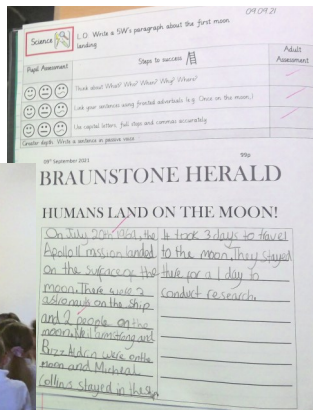 09.09.21
Science
L.O. Write a 5W's paragraph about the first moon
landing.
Pupil Assessment
Steps to success
Adult
Assessment
Think about What? Who? When? Why? Where?
Link your sentences using fronted adverbials (e.g. Once on the moon,)
Use capital letters, full stops and commas accurately.
Greater depth: Write a sentence in passive voice
09th September 2021
99p
BRAUNSTONE HERALD
HUMANS LAND ON THE MOON!
On July 20th, the
Apollo 11 mission landed
on the surface of the
moon. There were 3
astronauts on the ship
and 2 people on the
moon. Neil armstrong and
Buzz Aldrin were on the
moon and Micheal
Collins stayed in the
It took 3 days to travel
to the moon. They stayed
there for a 1 day to
conduct research.